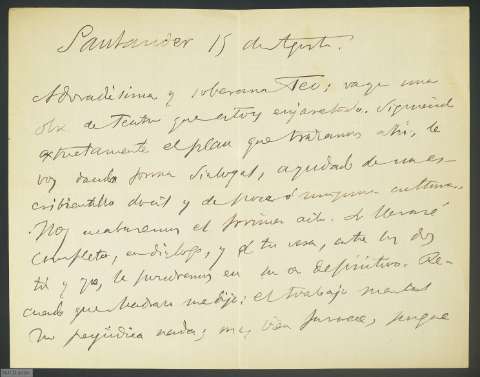 Santander 15 de Agosto.
Adoradísima y soberana Teo; vaya una
obra de teatro que estoy enjaretando. Siguiendo
estrictamente el plan que trazamos ahí, le
voy dando forma dialogal, ayudado de un es-
cribientillo dócil y de poca ó ninguna cultura.
Hoy acabaremos el primer acto. Lo llevaré
completo, en diálogo, y en tu casa, entre los dos
tú y yo, le pondremos en su ser definitivo. Re-
cuerdo que Madrazo me dijo: el trabajo mental
no perjudica nada; más bien favorece, porque